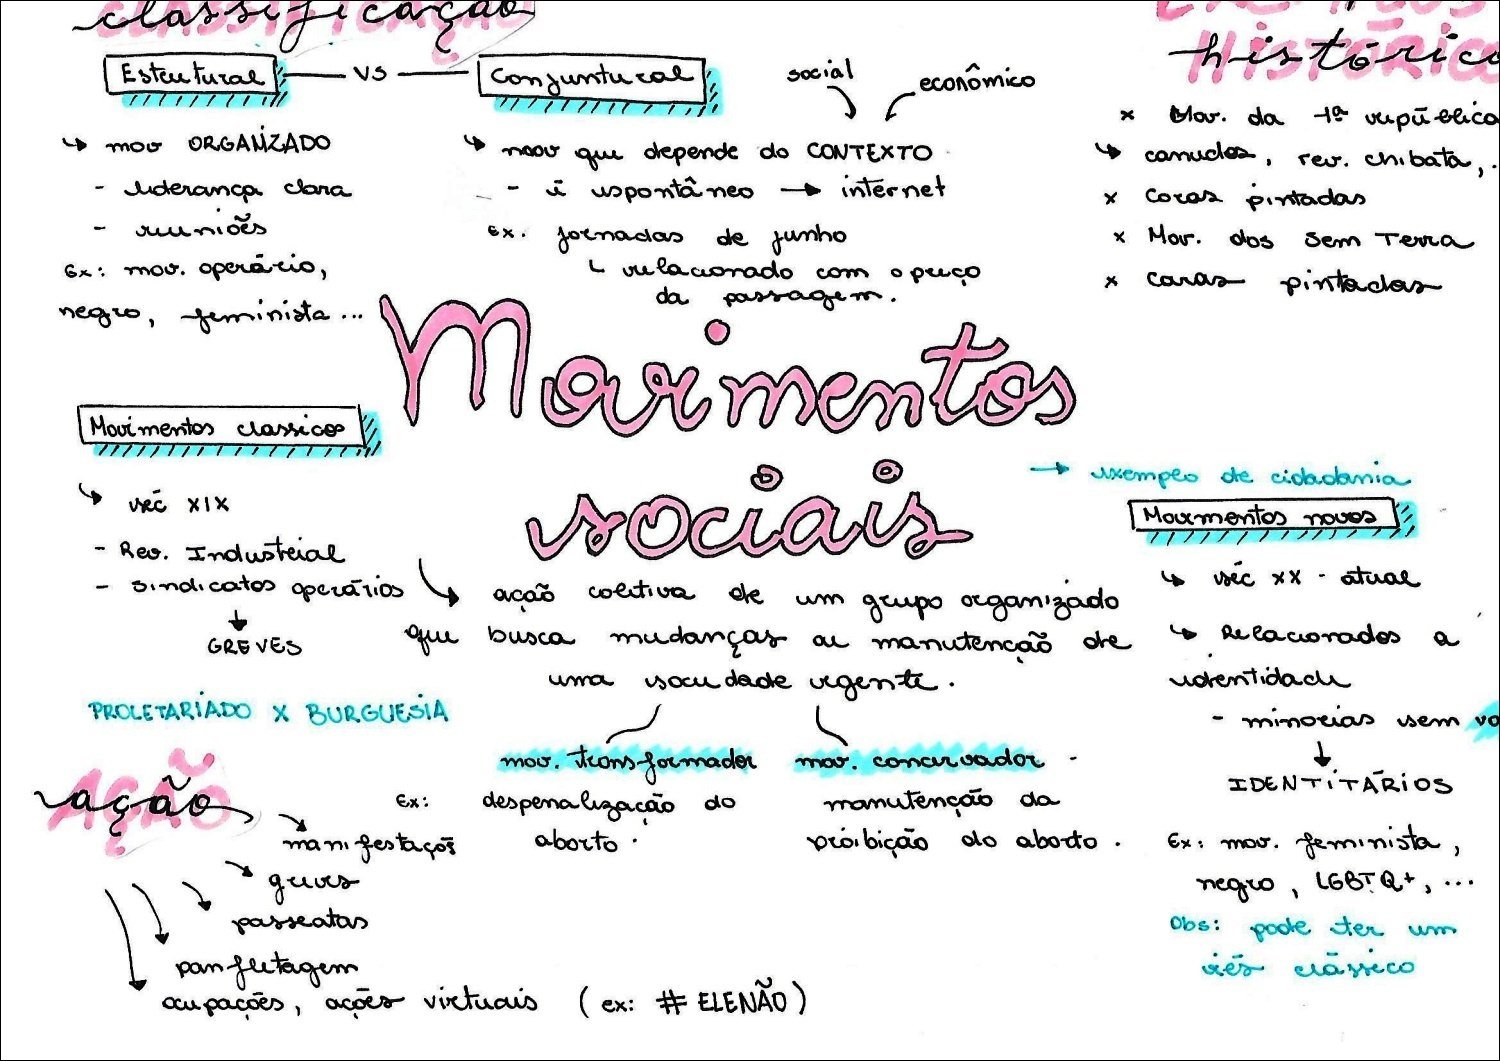 classificação
Estrutural vs Conjuntural
↳ mov ORGANIZADO
- liderança clara
- reuniões
Ex: mov. operário,
negro, feminista...
social econômico
↳ mov que depende do CONTEXTO
- é espontâneo → internet
Ex. jornadas de junho
↳ relacionado com o preço
da passagem.
históric
x Mov. da 1ª república
↳ canudos, rev. chibata,.
x Caras pintadas
x Mov. dos Sem Terra
x caras pintadas
Movimentos sociais
ação coletiva de um grupo organizado
que busca mudanças ou manutenção de
uma sociedade vigente.
mov. transformador
Ex: despenalização do
aborto.
mov. conservador
manutenção da
proibição do aborto.
Movimentos classicos
séc XIX
- Rev. Industrial
- sindicatos operários
↓
GREVES
PROLETARIADO X BURGUESIA
AÇÃO
ação
manifestaçõ
greves
passeatas
panfletagem
ocupações, ações virtuais (ex: # ELENÃO)
→ exemplo de cidadania
Movimentos novos
↳ séc XX - atual
↳ Relacionados a
identidade
- minorias sem vo
↓
IDENTITÁRIOS
Ex: mov. feminista,
negro, LGBTQ+, ...
Obs: pode ter um
viés clássico